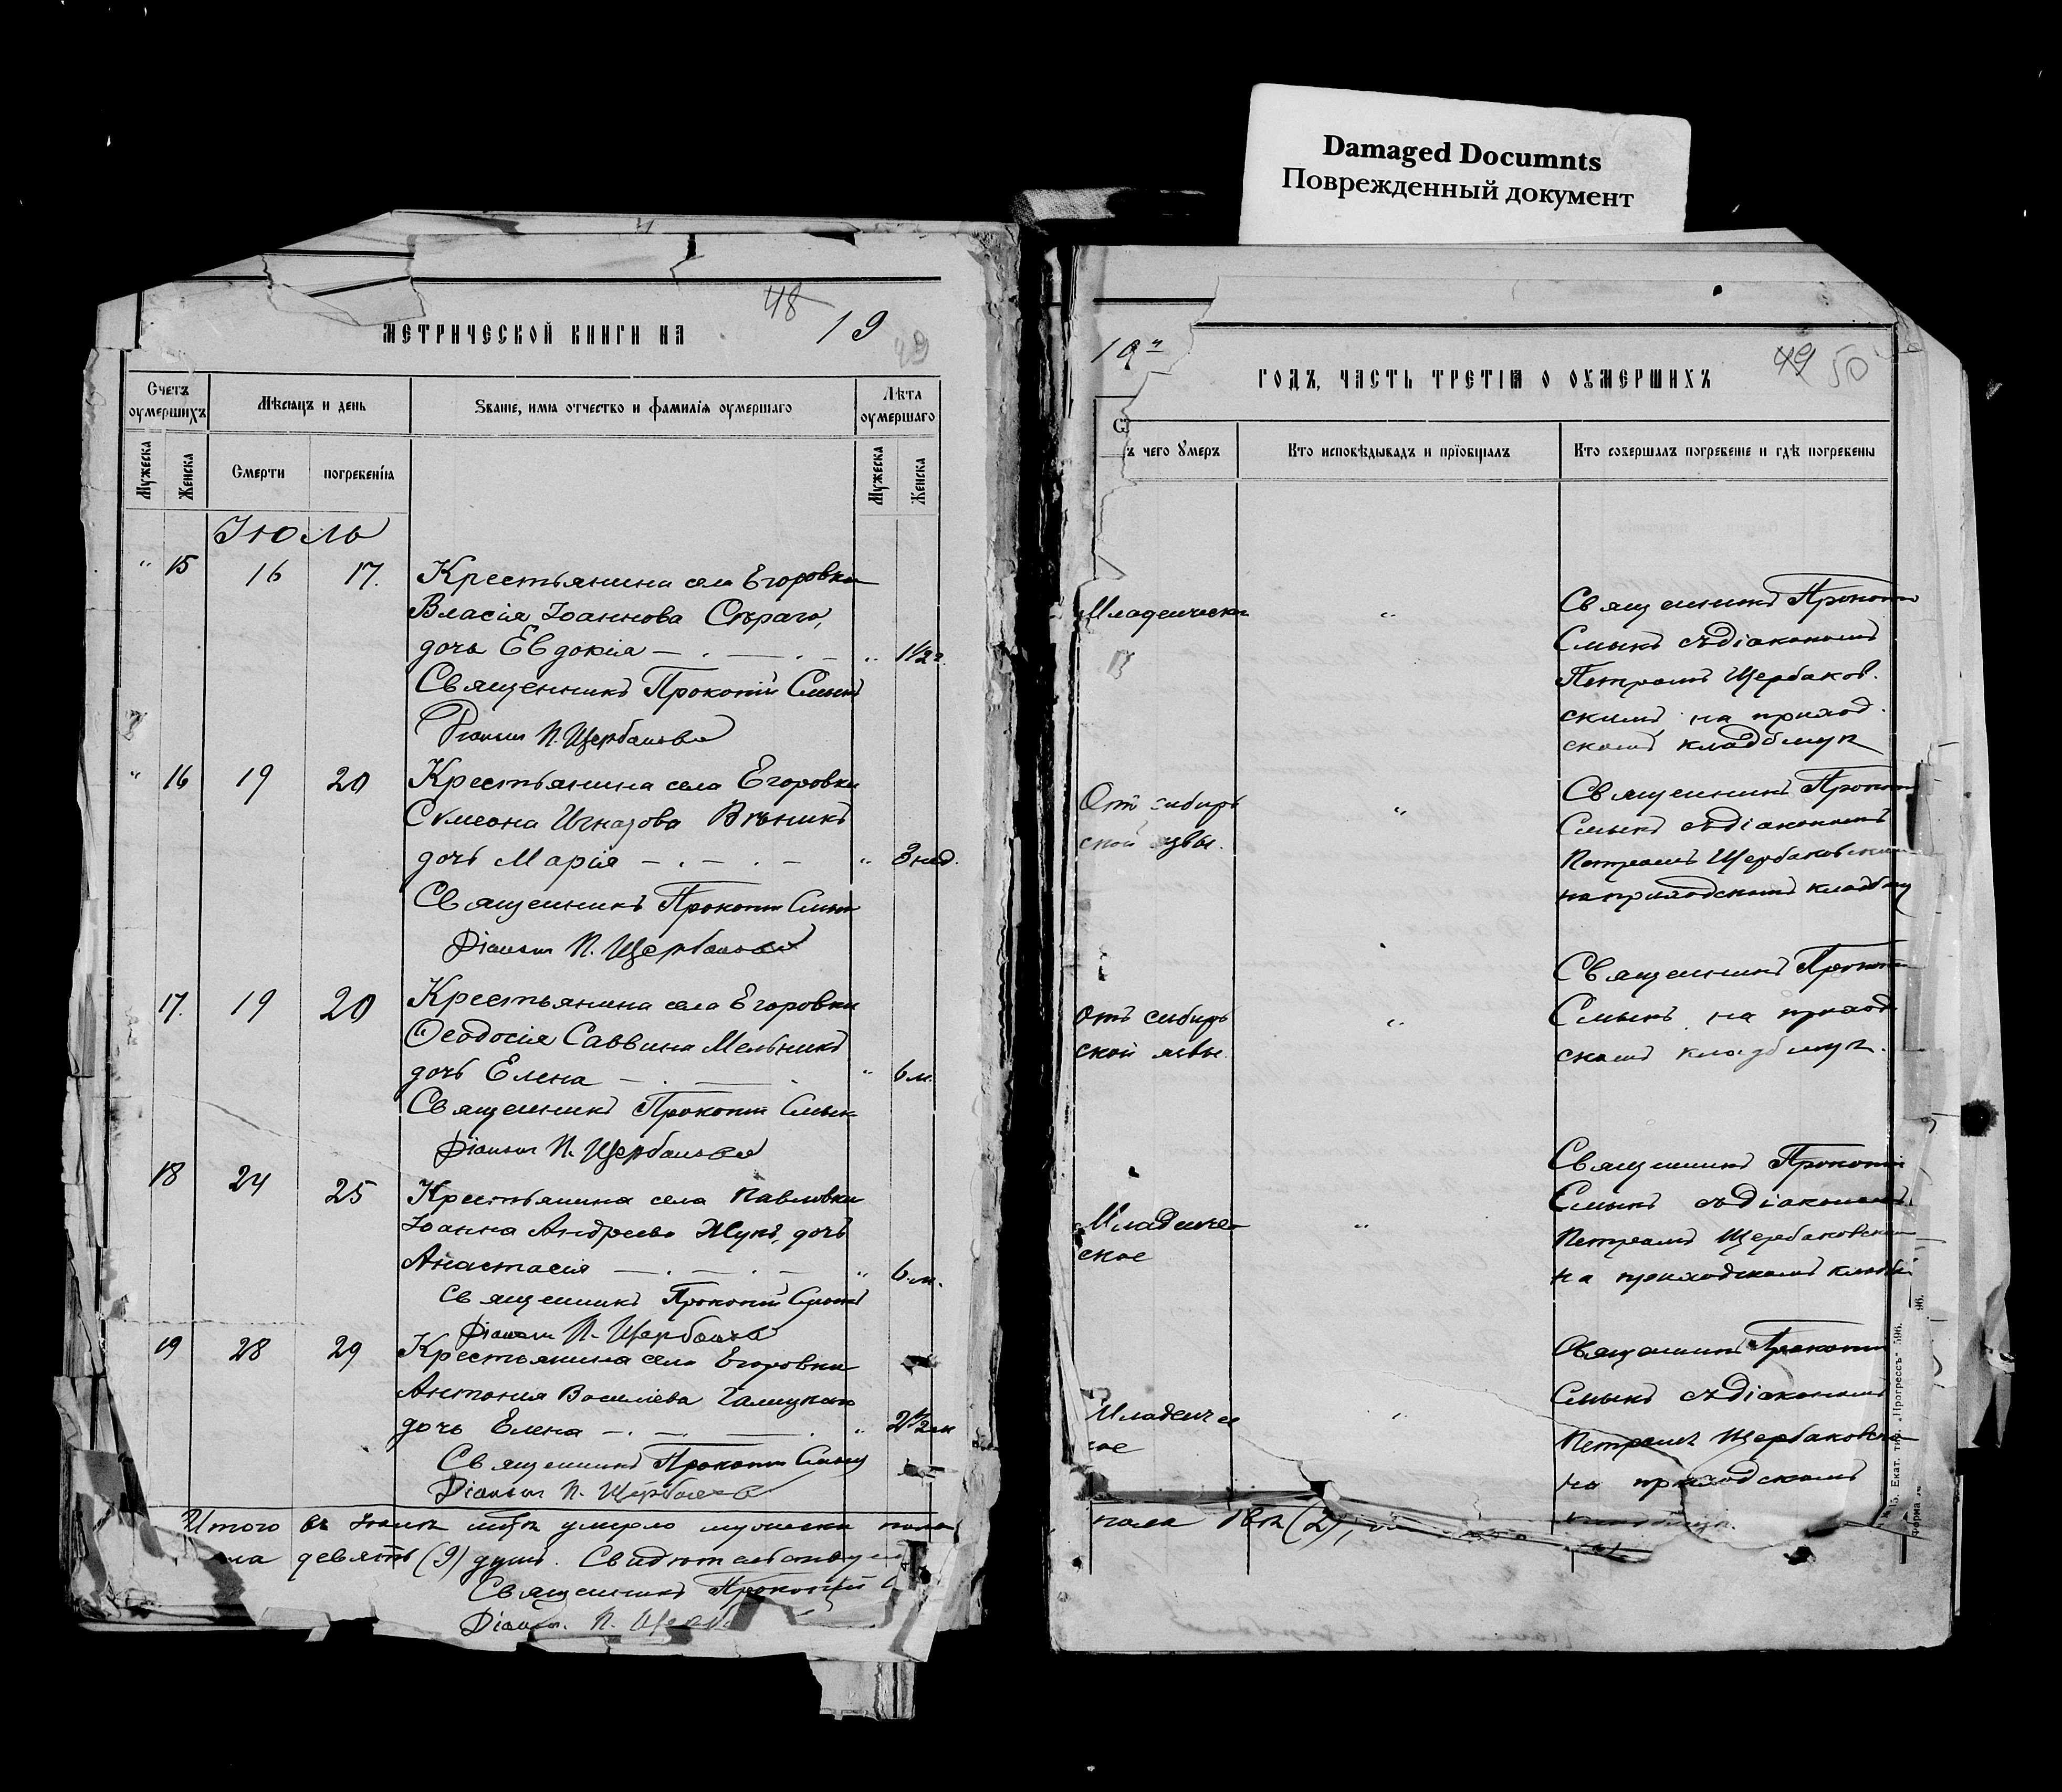 Damaged Documnts
Поврежденный документ
48
МЕТРИЧЕСКОЙ КНИГИ НА 19
49
Счетъ оумершихъ
Мѣсяцъ и день
Званіе, имя отчество и фамилія оумершаго
Лѣта оумершаго
Мужеска
Женска
Смерти
погребенія
Мужеска
Женска
Іюль
" 15 16 17. Крестьянина села Егоровки
Власія Іоаннова Сѣраго,
дочь Евдокія — . — . — " 1 1/2 г.
Священникъ Прокопій Смыкъ
Діаконъ П. Щербаковс
" 16 19 20 Крестьянина села Егоровки
Сѵмеона Игнатова Вѣникъ
дочь Марія — . — . — " 3 нед.
Священникъ Прокопій Смык
Діаконъ П. Щербаковс
17. 19 20 Крестьянина села Егоровки
Ѳеодосія Саввина Мельникъ
дочь Елена — . — . " 6 м.
Священникъ Прокопій Смык
Діаконъ П. Щербаковс
18 24 25 Крестьянина села Павловки
Іоанна Андреева Жукъ, дочь
Анастасія — . — . — " 6. м.
Священникъ Прокопій Смыкъ
Діаконъ П. Щербаковс
19 28 29 Крестьянина села Егоровки
Антонія Василіева Галицкаго
дочь Елена — . — . — . " 2 1/2 м
Священникъ Прокопій Смык
Діаконъ П. Щербаковс
Итого въ Іюлѣ мцѣ умерло мужеска пола
девять (9) душъ. Свидѣтельствуе
Священникъ Прокопій
Діаконъ П. Щерб
19
49 50
ГОДЪ, ЧАСТЬ ТРЕТІЯ О ОУМЕРШИХЪ
ъ чего Умеръ
Кто исповѣдывалъ и пріобщалъ
Кто совершалъ погребеніе и гдѣ погребены
Младенческ " Священникъ Прокопій
Смыкъ съ діакономъ
Петромъ Щербаков.
скимъ на приход.
скомъ кладбищѣ
Отъ сибир " Священникъ Прокопій
ской язвы. Смыкъ съ діакономъ
Петромъ Щербаковским
на приходскомъ кладбищ
Священникъ Прокопій
Отъ сибир " Смыкъ на приход
ской язвы. скомъ кладбищѣ.
Священникъ Прокопій
Смыкъ съ діакономъ
Младенче " Петромъ Щербаковским
ское на приходскомъ кладби
Священникъ Прокопій
Смыкъ съ діакономъ
Младенче " Петромъ Щербаковс
кое на приходскомъ
кладбищѣ.
пола двѣ (2),
Екат. тип. „Прогрессъ“ 596.
Форма